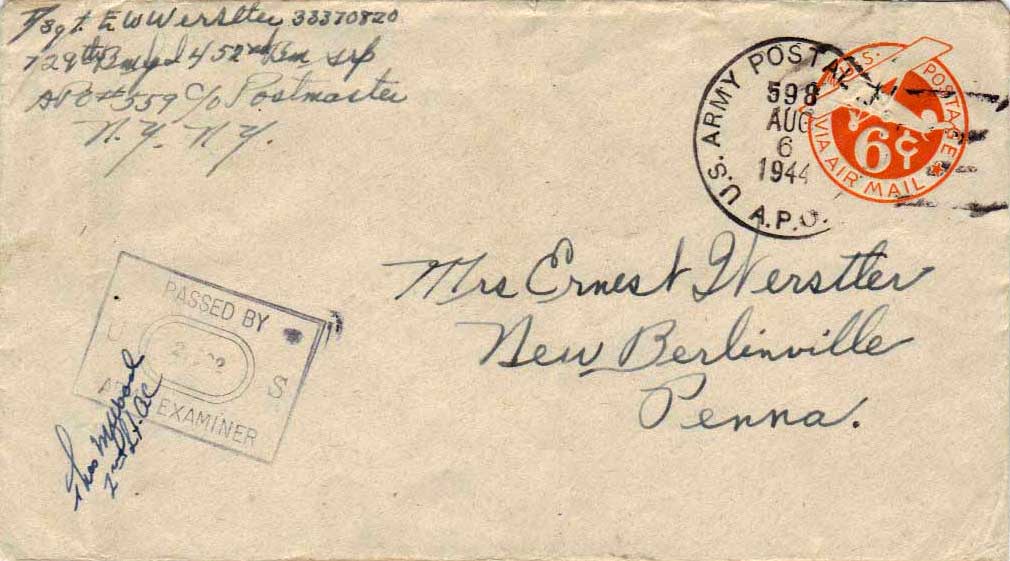 T/Sgt. E W Werstler 33370820
729th Bm Sqd 452nd Bm Grp
APO #559 C/o Postmaster
N.Y. N.Y.
U.S. ARMY POSTAL
598
AUG
6
1944
A.P.O.
U.S. POSTAGE
6¢
VIA AIR MAIL
Mrs Ernest Werstler
New Berlinville
Penna.
PASSED BY
U S
ARMY EXAMINER
2nd Lt. AC